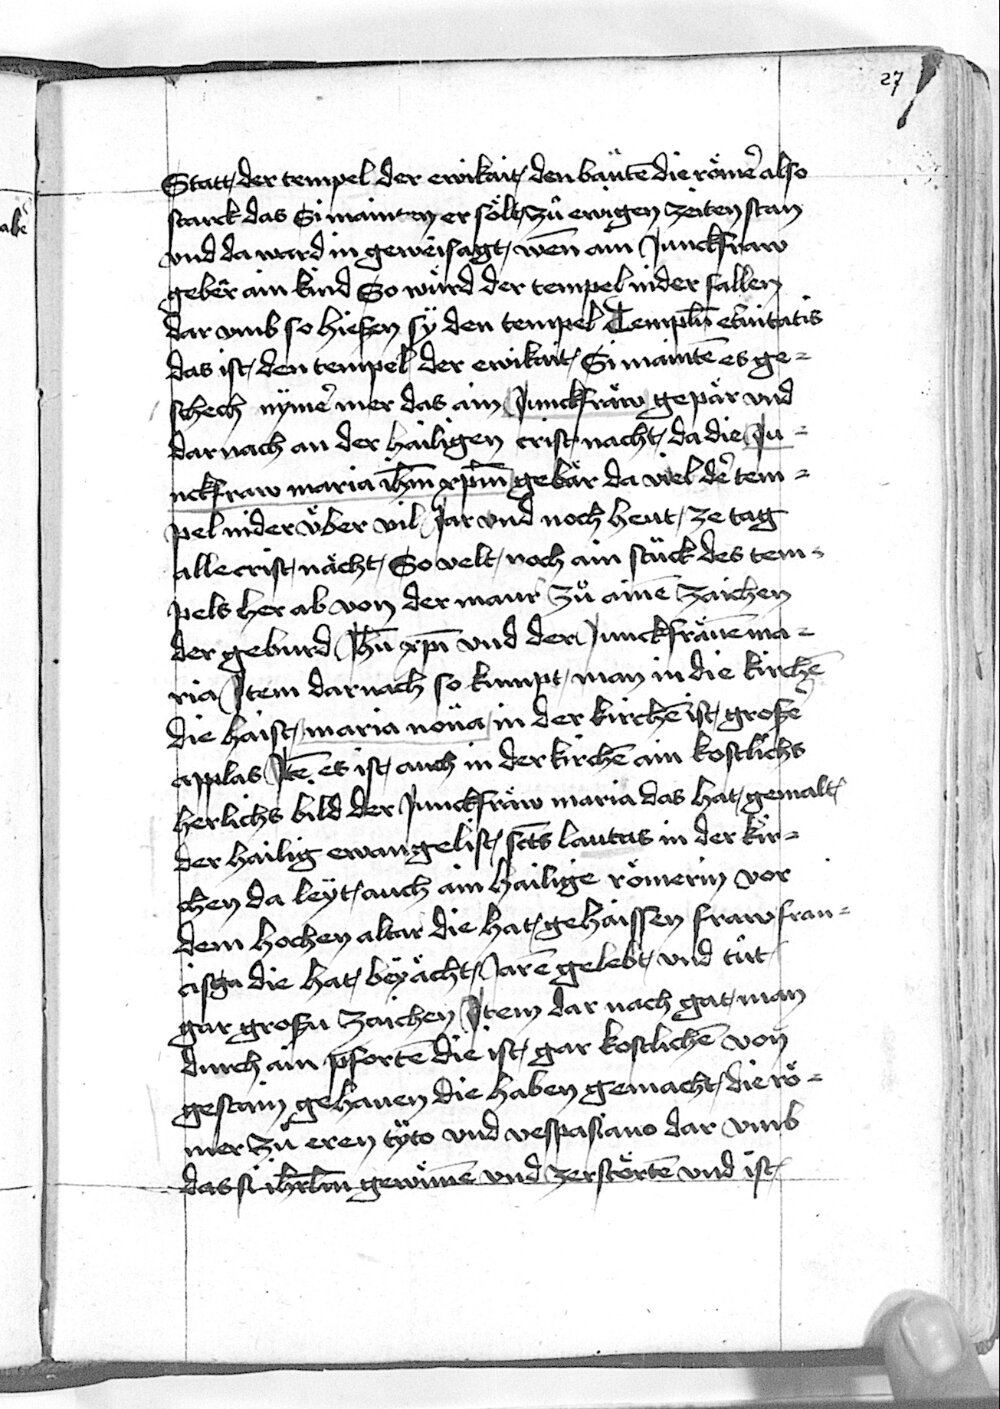 27
Statt der tempel der ewikait den bäutē die römẽ also
starck das Si mainten er sölt zů ewigen zeiten stan
vnd da ward in geweisagt wen ain Junckfraw
geber ain kind So würd der tempel nider fallen
dar vmb so hiesen sÿ den tempel Templū etũitatis
das ist den tempel der ewikait Si maintē es ge-
schech nÿmẽ mer das ain Junckfräw gepär vnd
dar nach an der hailigen crist nacht da die Ju-
nckfraw maria ihm̄ xpm̄ gebär da viel dẽ tem-
pel nider über vil Jar vnd noch heut ze tag
alle crist nächt So velt noch ain stück des tem-
pels her ab von der maur zů ainē zaichen
der geburd Jhū xpī vnd der Junckfräuē ma-
ria Item darnach so kumpt man in die kirchē
die haist maria noüa in der kirchē ist grosẽ
applas Itē es ist auch in der kirchē ain kostlichs
herlichs bild der Junckfräw maria das hat gemalt
der hailig ewangelist sc̄ts lautas in der kir-
chen da leÿt auch ain hailige römerin vor
dem hochen altar die hat gehaissen fraw fran-
cisga die hat beÿ ächt Jarē gelebt vnd tůt
gar grosu zaichen Item dar nach gat man
durch ain pfortē die ist gar kostlichē von
gestain gehauen die haben gemacht die rö-
mer zů eren tÿto vnd vespasiano dar vmb
das si ihrlm̄ gewūnē vnd zerstörtē vnd ist